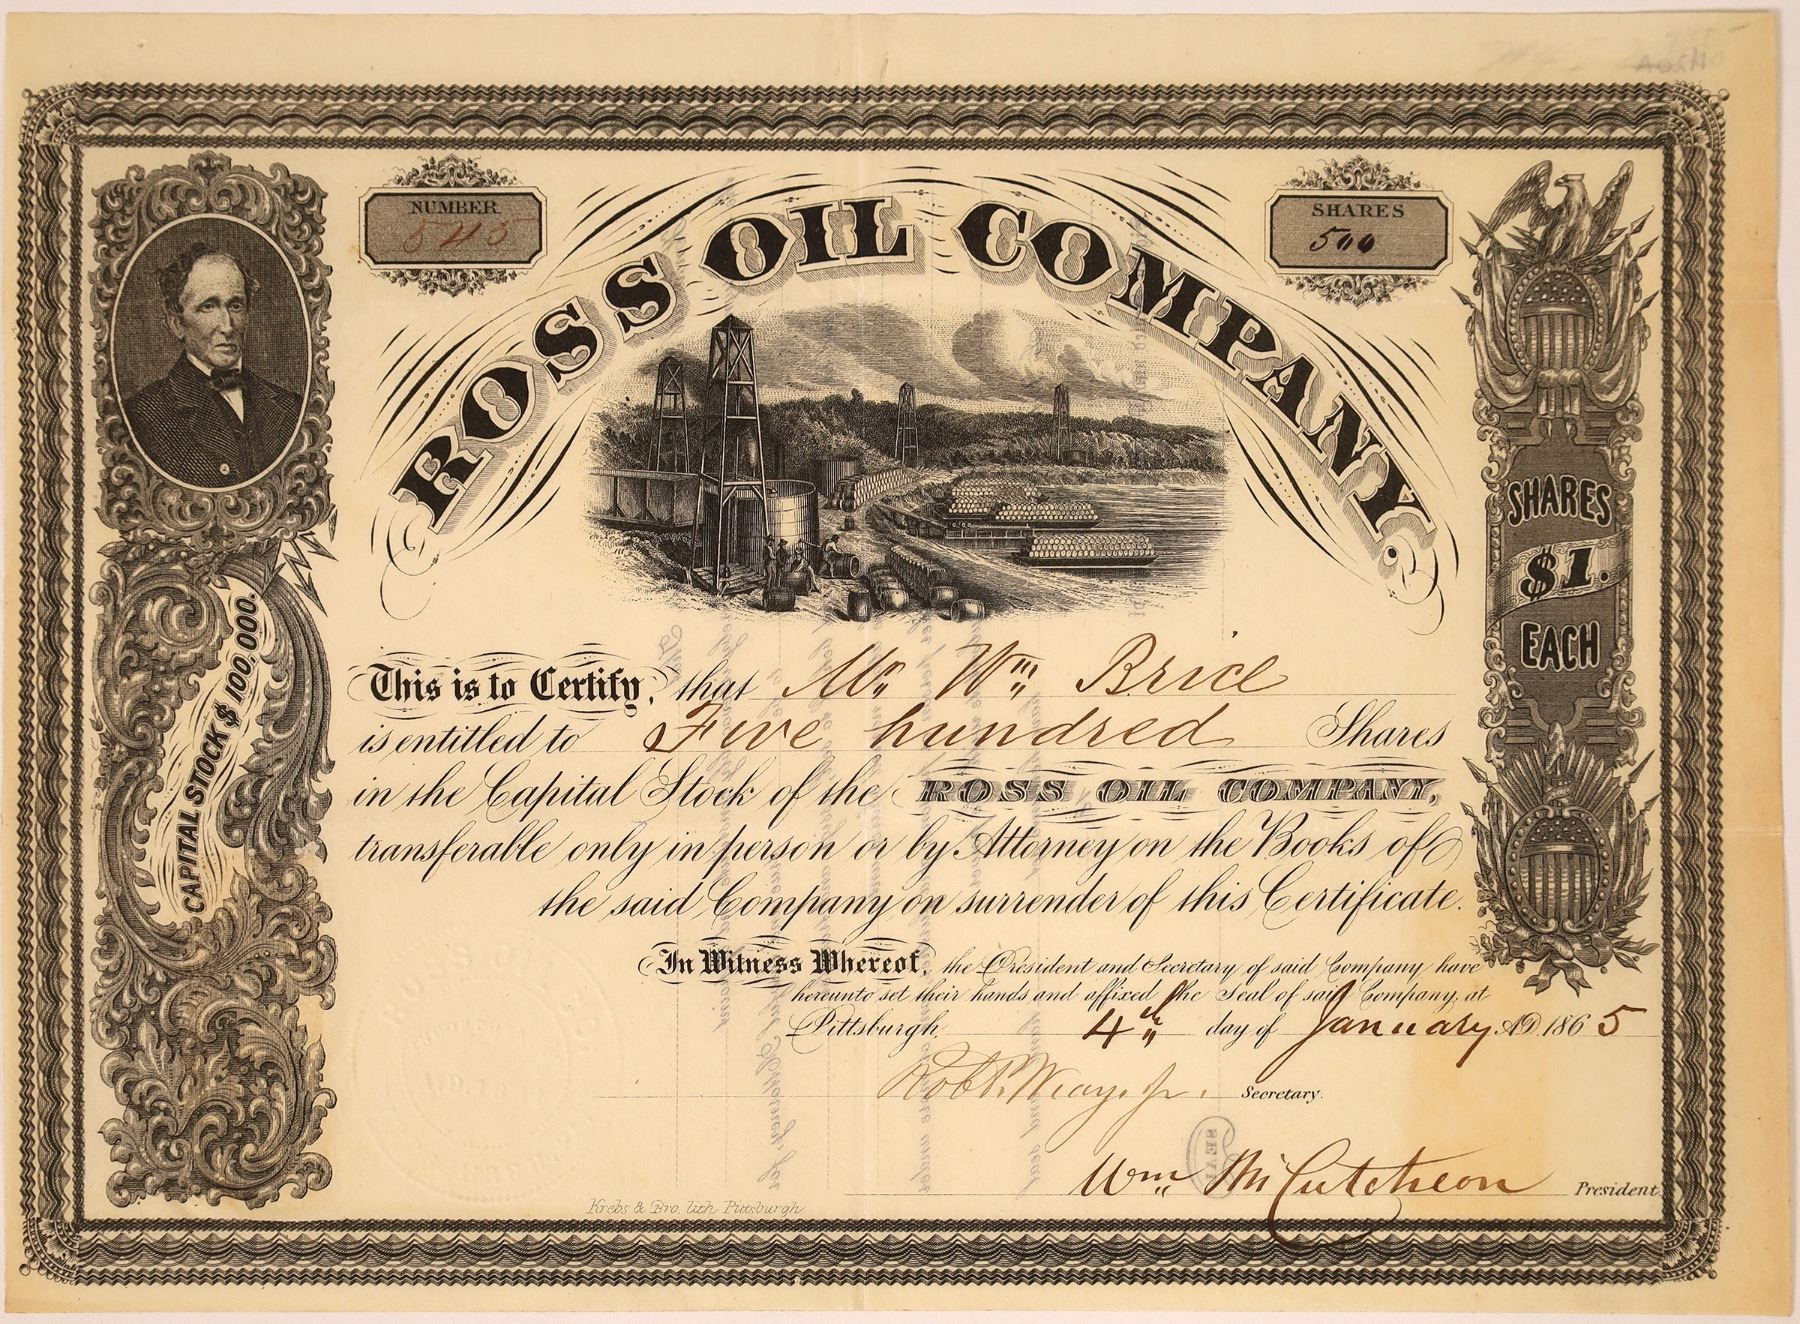 NUMBER
545
ROSS OIL COMPANY
SHARES
500
SHARES
$1.
EACH
CAPITAL STOCK $100,000.
This is to Certify, that Mr. Wm. Brice
is entitled to Five hundred Shares
in the Capital Stock of the ROSS OIL COMPANY,
transferable only in person or by Attorney on the Books of
the said Company on surrender of this Certificate.
In Witness Whereof, the President and Secretary of said Company have
hereunto set their hands and affixed the Seal of said Company, at
Pittsburgh 4th day of January A.D. 1865
Secretary.
SEAL
Wm. McCutcheon President
Krebs & Bro. lith. Pittsburgh